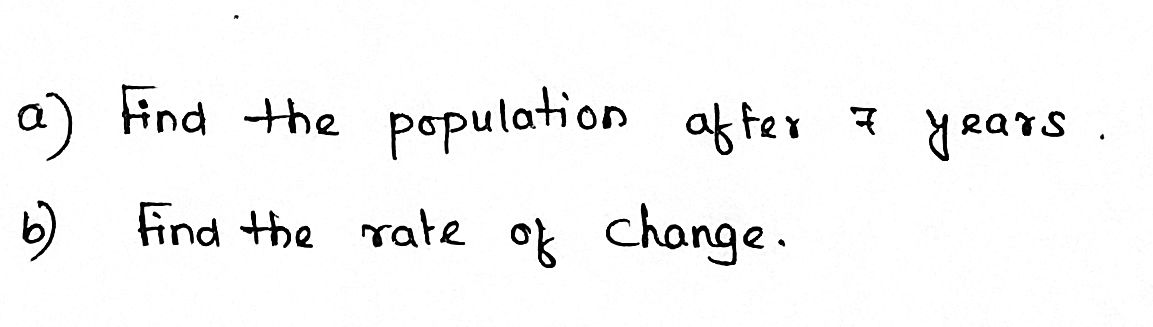 a) Find the population after 7 years.
b) Find the rate of change.